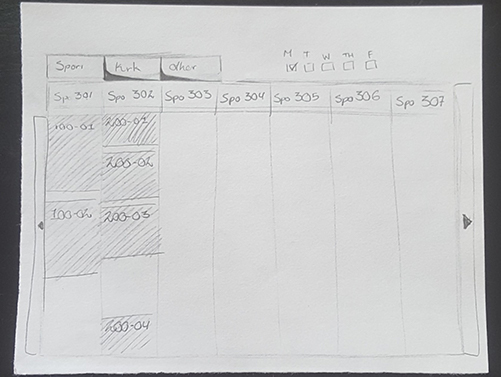 Sport Kirk Other
M T W TH F
Spo 301 Spo 302 Spo 303 Spo 304 Spo 305 Spo 306 Spo 307
100-01 200-01
200-02
100-02 200-03
200-04